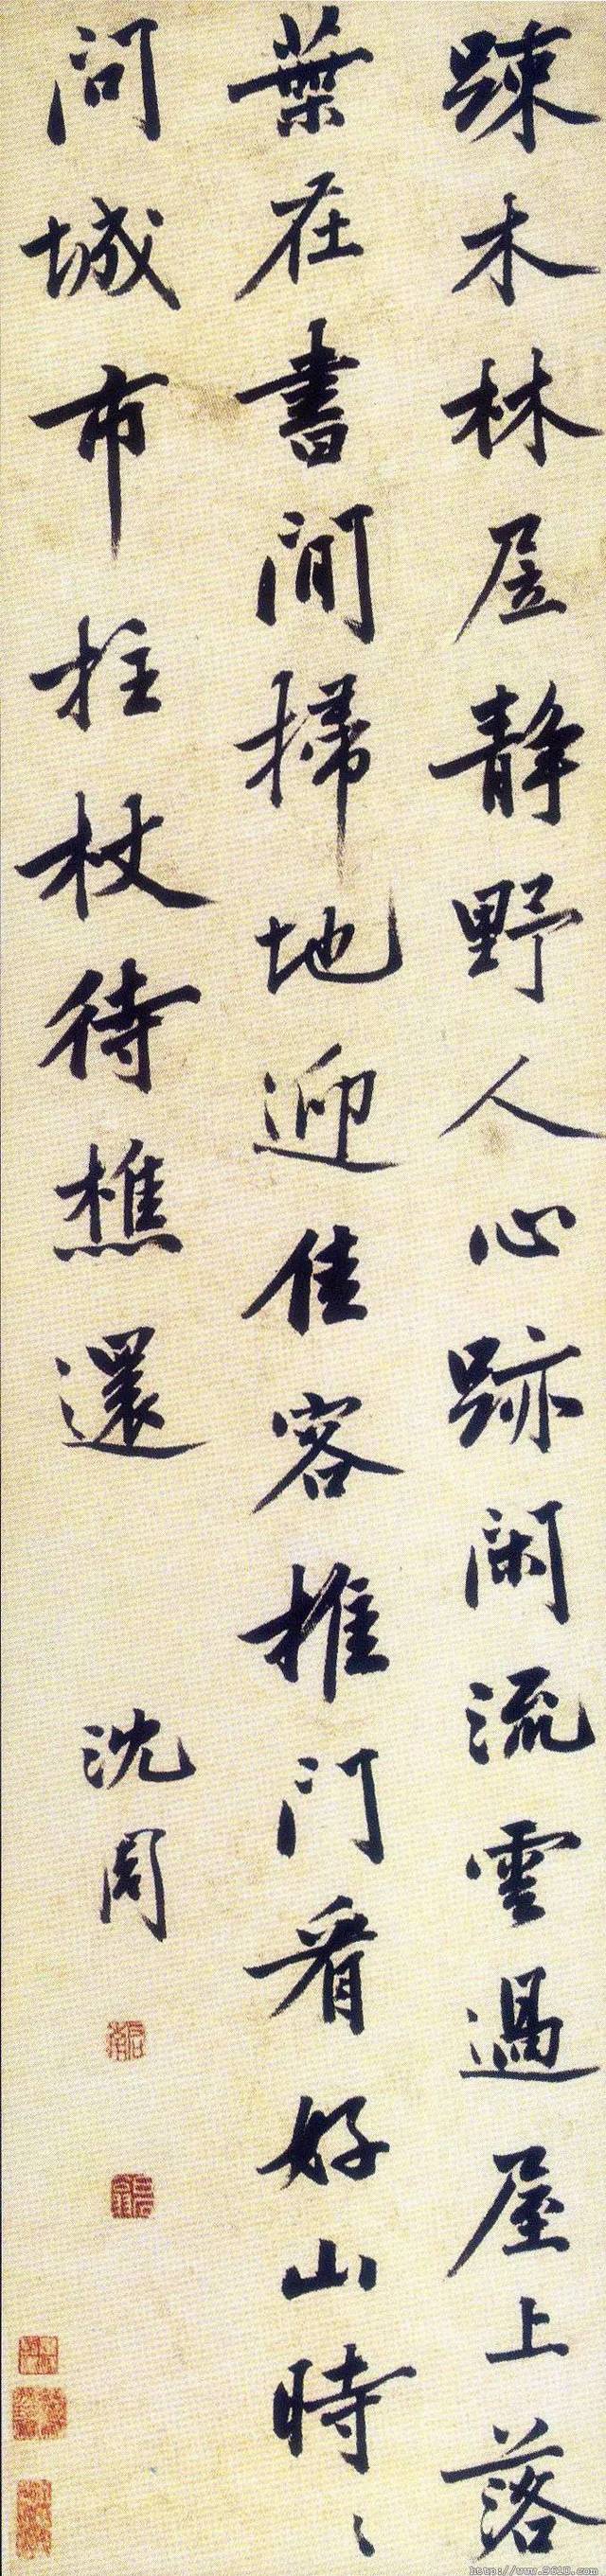 踈木林居静野人心跡閑流雲過屋上落
葉在書間掃地迎佳客推門看好山時〻
問城市拄杖待樵還
沈周
啟南
http://www.9610.com